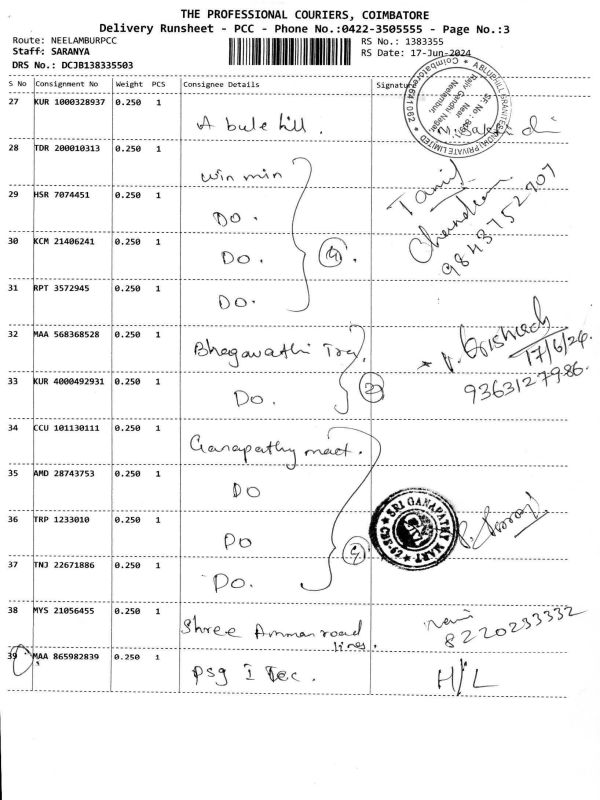 THE PROFESSIONAL COURIERS, COIMBATORE
Delivery Runsheet - PCC - Phone No.:0422-3505555 - Page No.:3
Route: NEELAMBURPCC
RS No.: 1383355
Staff: SARANYA
RS Date: 17-Jun-2024
DRS No.: DCJB138335503
S No Consignment No Weight PCS Consignee Details Signature
27 KUR 1000328937 0.250 1 A bule hill.
28 TDR 200010313 0.250 1 Win min
29 HSR 7074451 0.250 1 Do.
30 KCM 21406241 0.250 1 Do. 4
31 RPT 3572945 0.250 1 Do.
Tamil
Chandran
9843752707
32 MAA 568368528 0.250 1 Bhagavathi Tra.
17/6/24.
33 KUR 4000492931 0.250 1 Do. 2
9363127986.
34 CCU 101130111 0.250 1 Ganapathy mart.
35 AMD 28743753 0.250 1 Do
36 TRP 1233010 0.250 1 Do
SRI GANAPATHY MART
CBE-62
37 TNJ 22671886 0.250 1 Do. 4
38 MYS 21056455 0.250 1 Shree Amman road lines.
8220233332
39 MAA 865982839 0.250 1 Psg I Tec. H/L